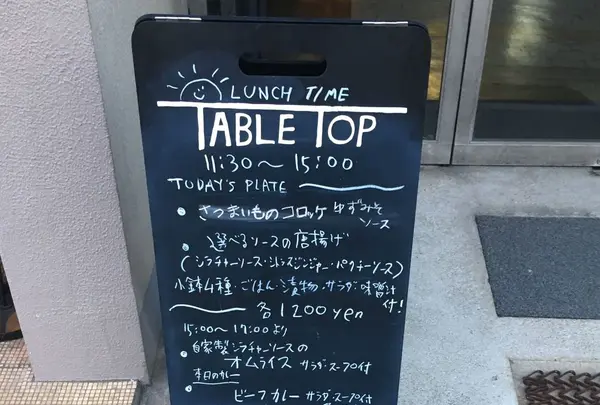 LUNCH TIME
TABLE TOP
11:30〜15:00
TODAY'S PLATE
• さつまいものコロッケ ゆずみそソース
• 選べるソースの唐揚げ
(シラチャーソース・シトラスジンジャー・パクチーソース)
小鉢4種・ごはん・漬物・サラダ・味噌汁付!
各1200yen
15:00〜17:00より
• 自家製シラチャーソースの
オムライス サラダ・スープ付
本日のカレー
• ビーフカレー サラダ・スープ付